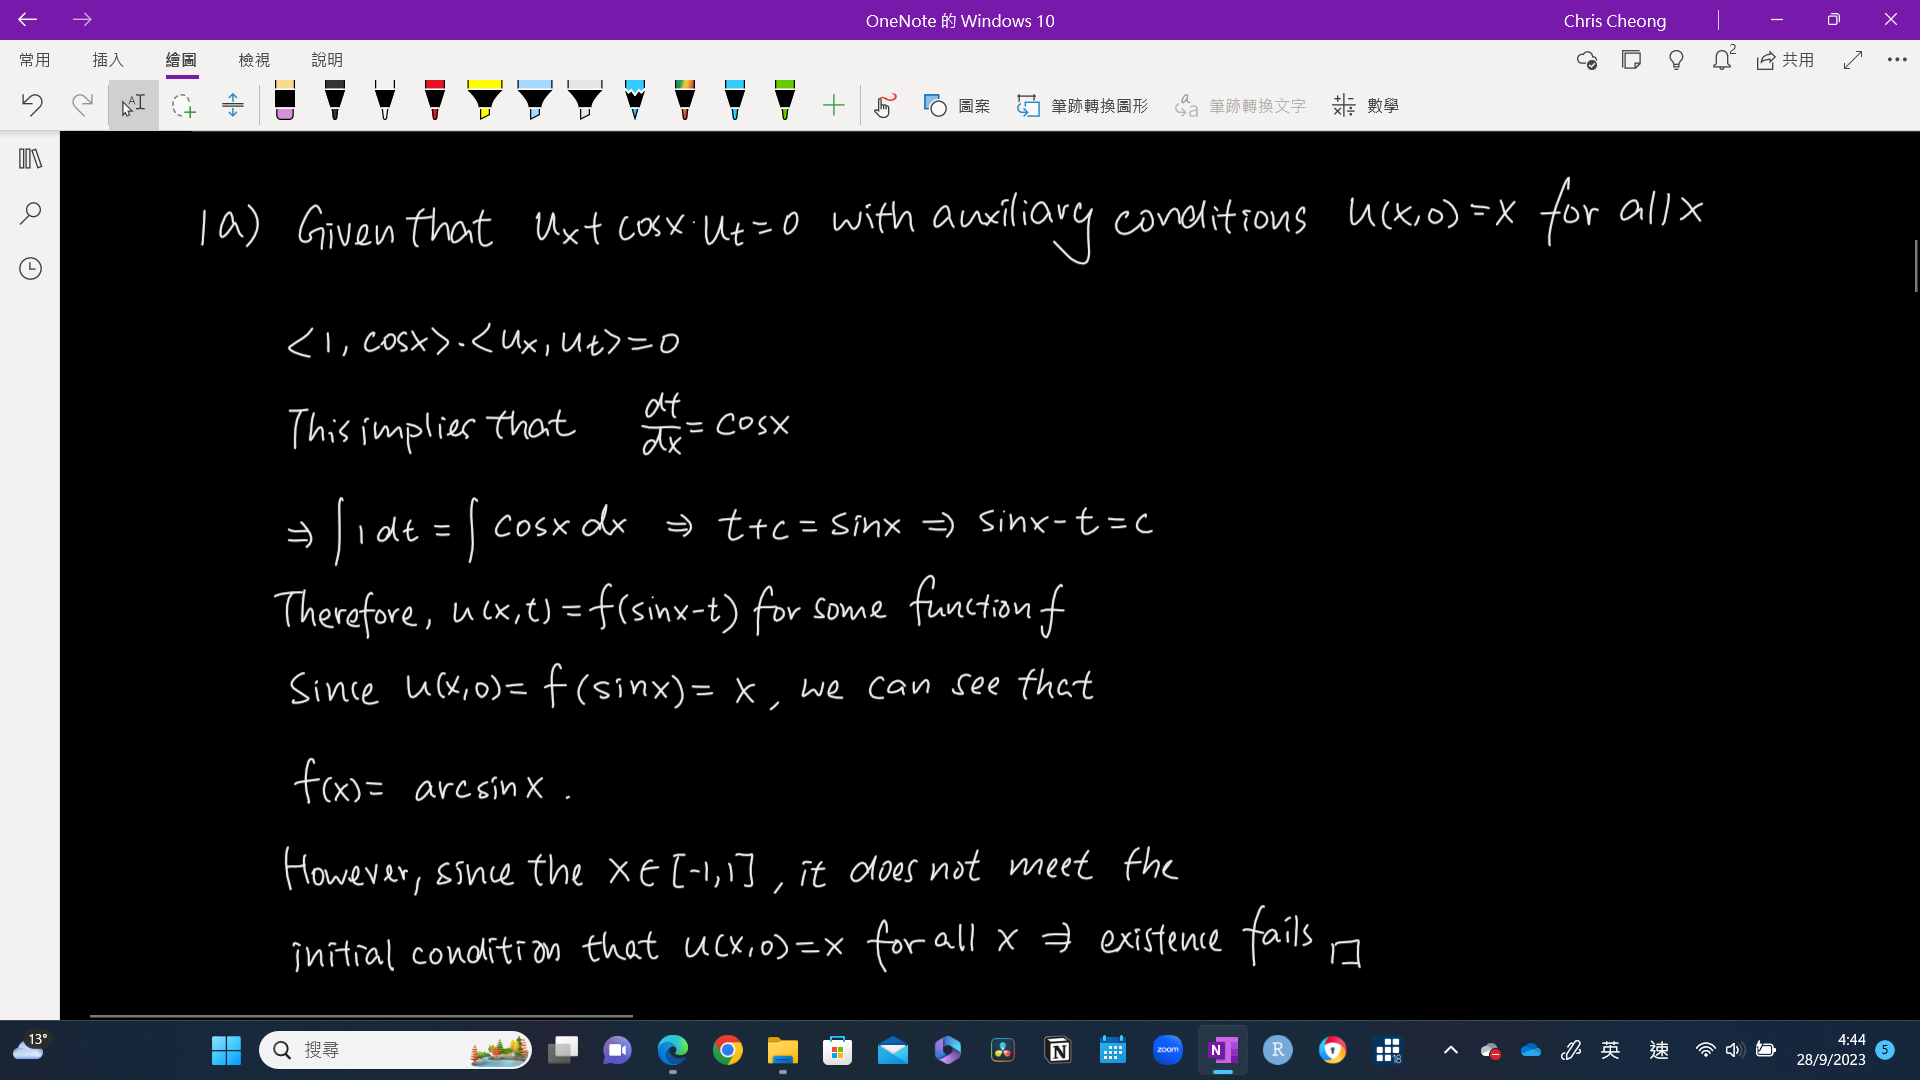 OneNote 的 Windows 10
Chris Cheong
常用 插入 繪圖 檢視 說明
2
共用
圖案 筆跡轉換圖形 筆跡轉換文字 數學
1a) Given that u_x + cosx · u_t = 0 with auxiliary conditions u(x,0) = x for all x
<1, cosx> · <u_x, u_t> = 0
This implies that dt/dx = cosx
⇒ ∫ 1 dt = ∫ cosx dx ⇒ t + c = sinx ⇒ sinx - t = c
Therefore, u(x,t) = f(sinx-t) for some function f
Since u(x,0) = f(sinx) = x, we can see that
f(x) = arcsin x.
However, since the x ∈ [-1,1], it does not meet the
initial condition that u(x,0) = x for all x ⇒ existence fails □
13°
搜尋
zoom
N
R
18
英
速
4:44
28/9/2023
5